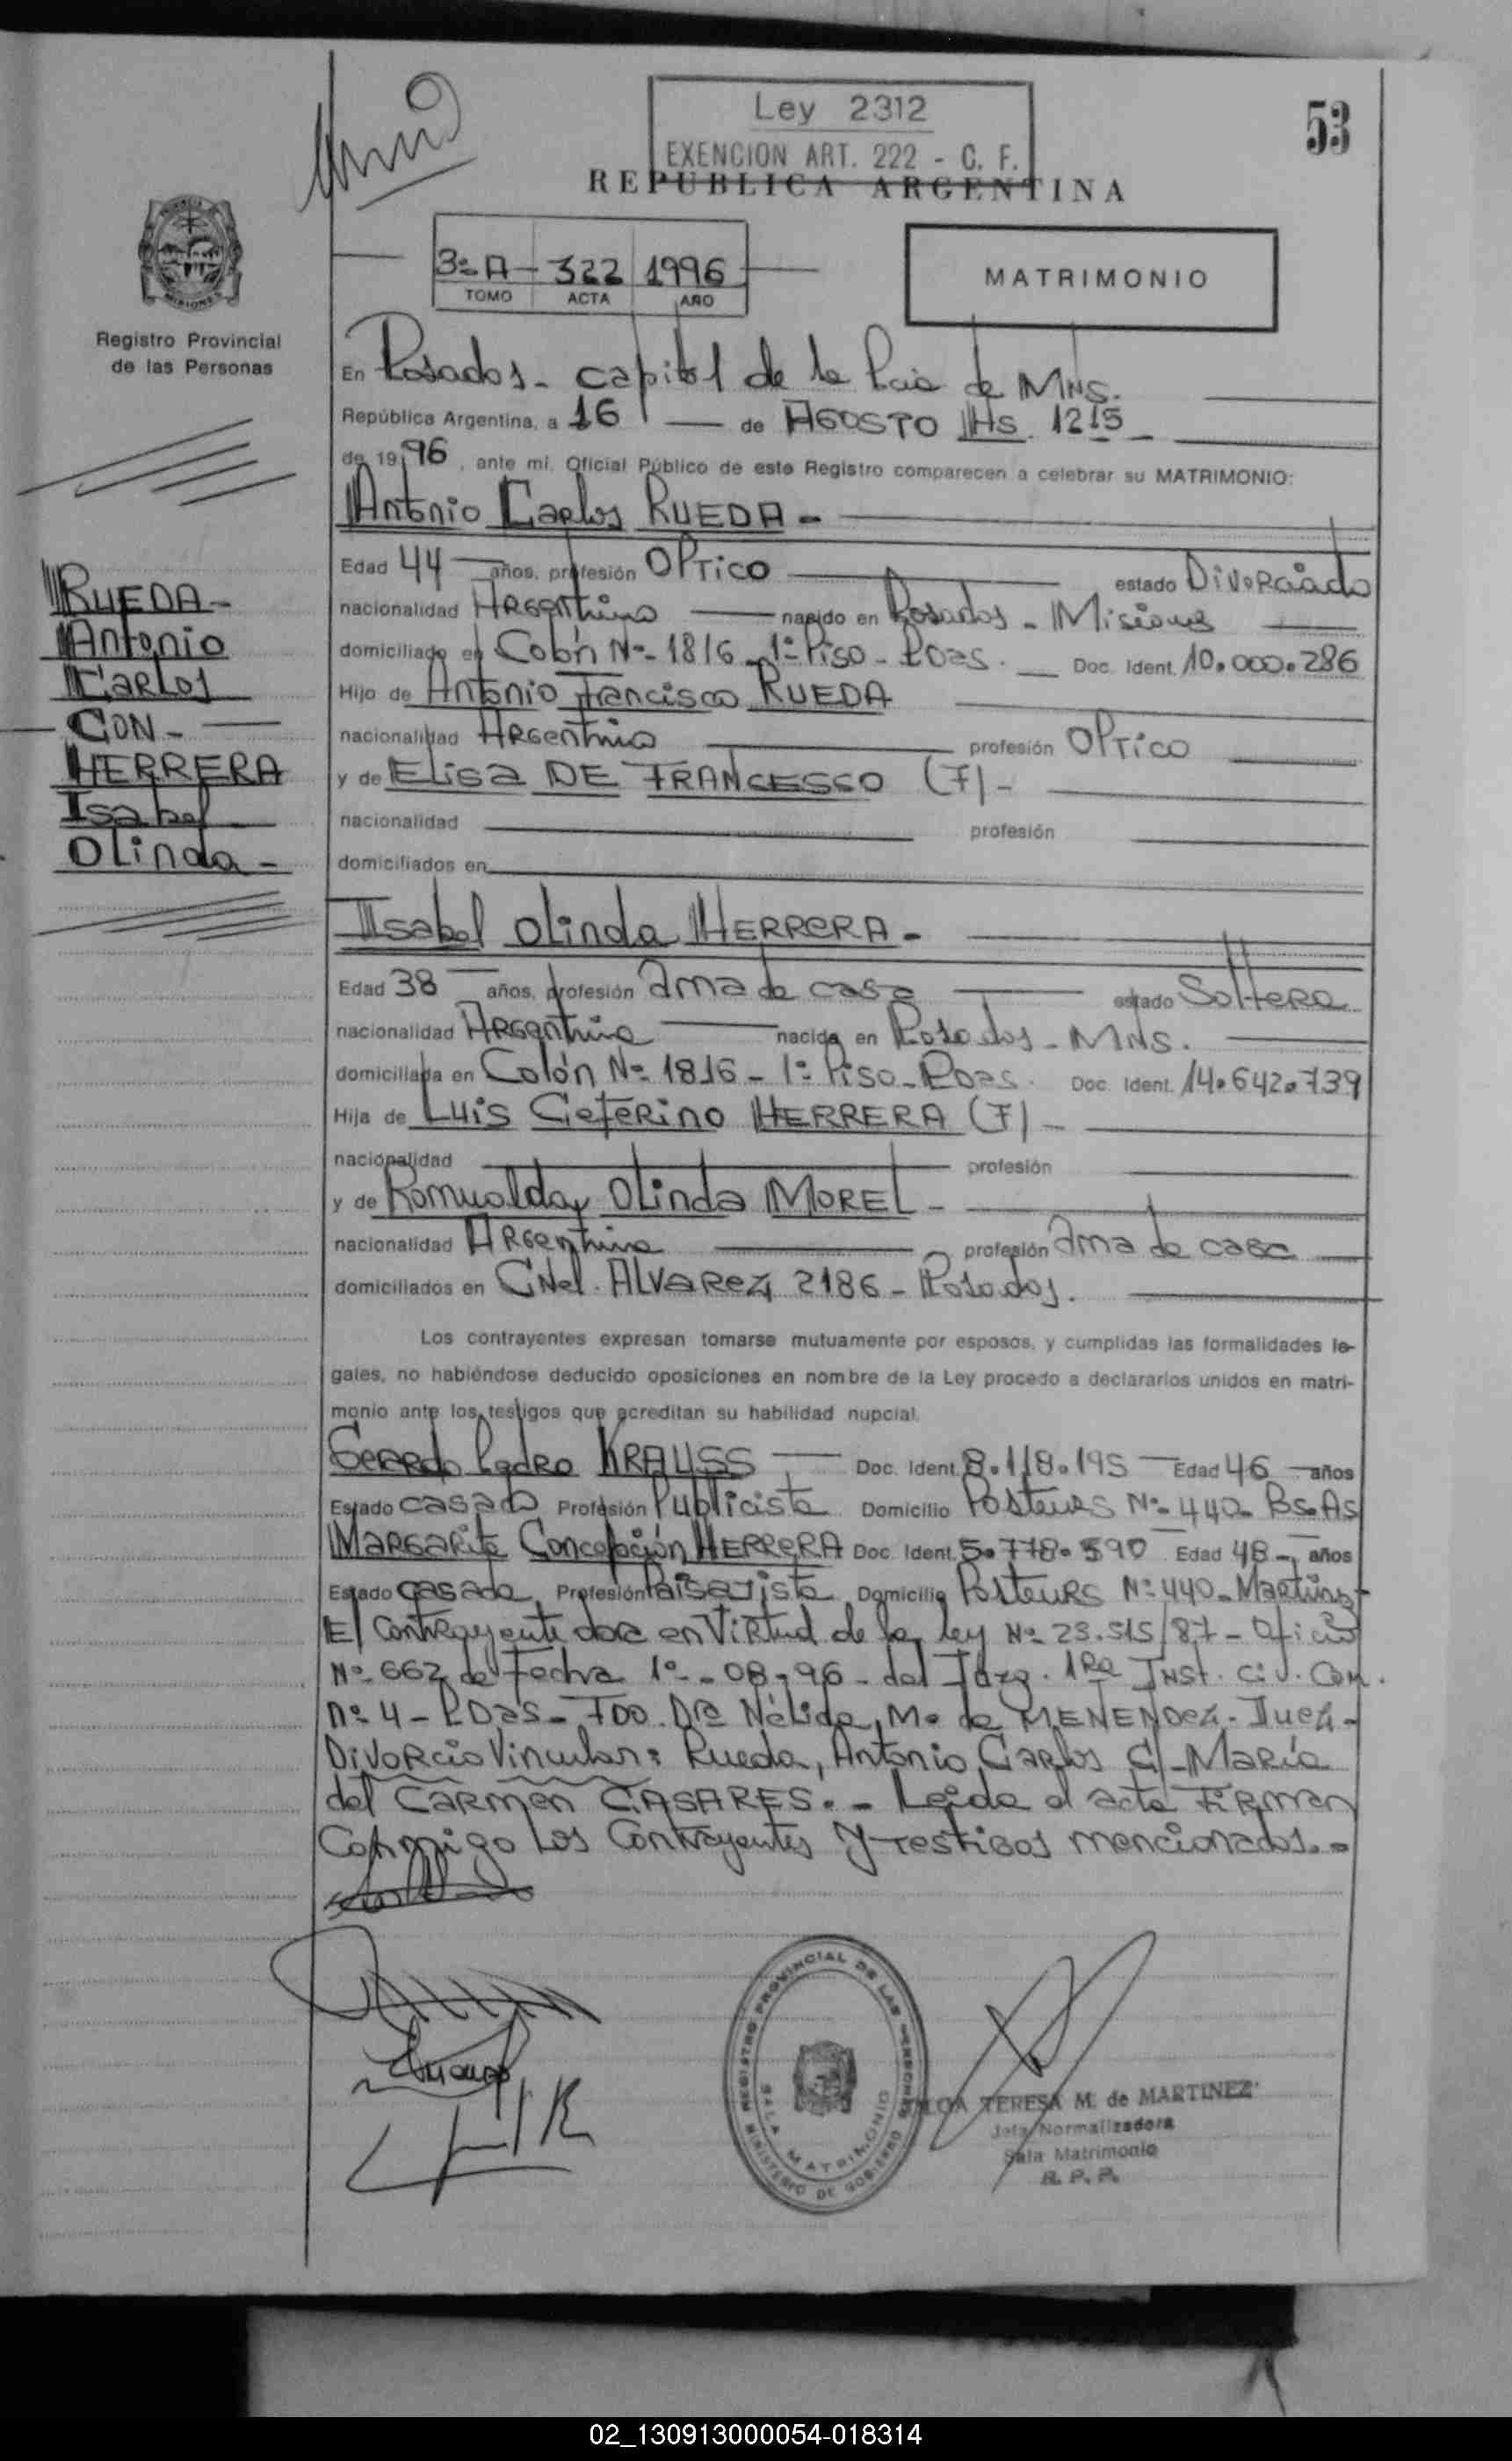 Ley 2312
EXENCION ART. 222 - C. F.
53
REPUBLICA ARGENTINA
3º A - 322 1996
TOMO ACTA AÑO
MATRIMONIO
Registro Provincial
de las Personas
En Posadas - capital de la Pcia de MNS.
República Argentina, a 16 de AGOSTO Hs. 1215
de 1996, ante mí, Oficial Público de este Registro comparecen a celebrar su MATRIMONIO:
Antonio Carlos RUEDA -
Edad 44 años, profesión OPTico estado Divorciado
nacionalidad Argentina nacido en Posadas - Misiones
domiciliado en Colón Nº 1816 - 1º Piso - Pdas. Doc. Ident. 10.000.286
Hijo de Antonio Francisco RUEDA
nacionalidad Argentina profesión OPTico
y de Elisa DE FRANCESCO (F) -
nacionalidad profesión
domiciliados en
RUEDA -
Antonio
Carlos
CON -
HERRERA
Isabel
Olinda -
Isabel Olinda HERRERA -
Edad 38 años, profesión ama de casa estado Soltera
nacionalidad Argentina nacida en Posadas - MNS.
domiciliada en Colón Nº 1816 - 1º Piso - Pdas. Doc. Ident. 14.642.739
Hija de Luis Ceferino HERRERA (F) -
nacionalidad profesión
y de Romualda Olinda MOREL -
nacionalidad Argentina profesión ama de casa
domiciliados en Cnel. Alvarez 2186 - Posadas.
Los contrayentes expresan tomarse mutuamente por esposos, y cumplidas las formalidades le-
gales, no habiéndose deducido oposiciones en nombre de la Ley procedo a declararlos unidos en matri-
monio ante los testigos que acreditan su habilidad nupcial.
Gerardo Pedro KRAUSS Doc. Ident. 8.118.195 Edad 46 años
Estado casado Profesión Publicista Domicilio Posteurs Nº 440 - Bs.As
Margarita Concepción HERRERA Doc. Ident. 5.778.590 Edad 48 - años
Estado casada Profesión Paisajista Domicilio Posteurs Nº 440 - Martinez -
El Contrayente en Virtud de la ley Nº 23.515/87 - Oficio
Nº 662 de Fecha 1º - 08 - 96 - del Jdzg. 1Ra Inst. Civ. Com.
nº 4 - Pdas - FDO. Dra Nélida M. de MENENDEZ - Juez -
Divorcio Vincular: Rueda, Antonio Carlos C/ María
del Carmen CASARES. - Leida el acta Firman
Conmigo los Contrayentes y testigos mencionados. -
REGISTRO PROVINCIAL DE LAS PERSONAS
SALA MATRIMONIO
MINISTERIO DE GOBIERNO
TERESA M. de MARTINEZ
Jefa Normalizadora
Sala Matrimonio
R. P. P.
02_130913000054-018314